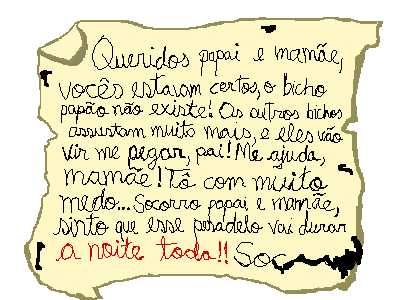 Queridos papai e mamãe,
vocês estavam certos, o bicho
papão não existe! Os outros bichos
assustam muito mais, e eles vão
vir me pegar, pai! Me ajuda,
mamãe! Tô com muito
medo... Socorro papai e mamãe,
sinto que esse pesadelo vai durar
a noite toda!! Soc